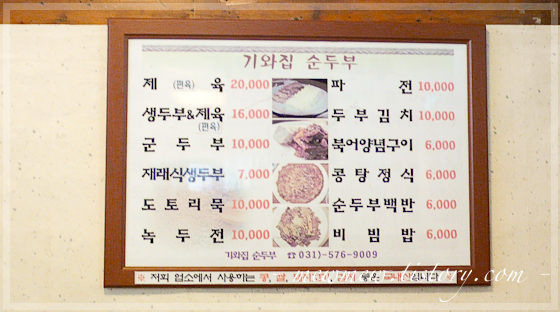 기와집 순두부
제 육 20,000
(편육)
생두부&제육 16,000
(편육)
군 두 부 10,000
재래식생두부 7,000
도 토 리 묵 10,000
녹 두 전 10,000
파 전 10,000
두 부 김 치 10,000
북어양념구이 6,000
콩 탕 정 식 6,000
순두부백반 6,000
비 빔 밥 6,000
기와집 순두부 ☎ 031)-576-9009
※ 저희 업소에서 사용하는 콩, 쌀,